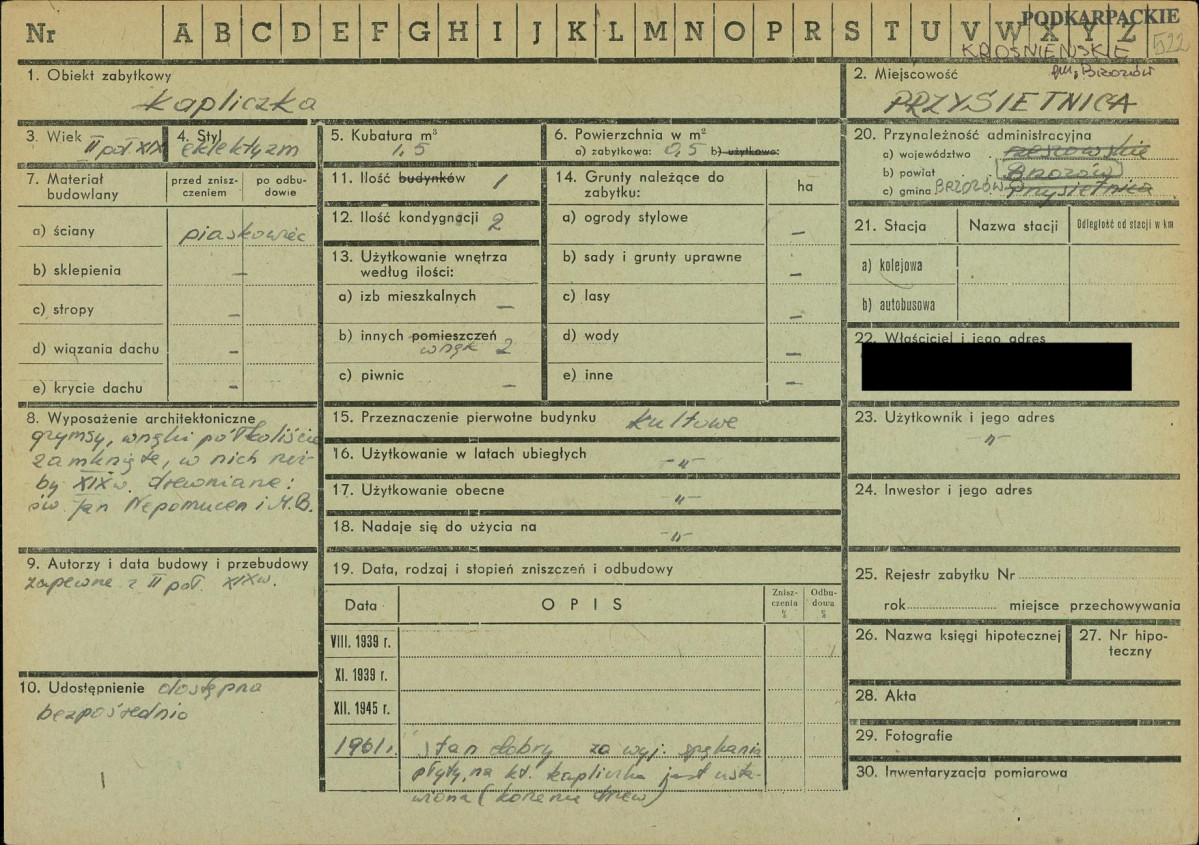 Nr A B C D E F G H I J K L M N O P R S T U V W X Y Z
PODKARPACKIE
KROŚNIEŃSKIE 522
gm. Brzozów
1. Obiekt zabytkowy
kapliczka
2. Miejscowość
PRZYSIETNICA
3. Wiek II poł XIX
4. Styl
eklektyzm
5. Kubatura m³
1,5
6. Powierzchnia w m²
a) zabytkowa: 0,5 b) użytkowa:
7. Materiał budowlany
przed znisz-
czeniem
po odbu-
dowie
a) ściany piaskowiec
b) sklepienia —
c) stropy —
d) wiązania dachu —
e) krycie dachu —
8. Wyposażenie architektoniczne
gzymsy, wnęki półkoliście
zamknięte, w nich rzeź-
by XIX w. drewniane:
św. Jan Nepomucen i M.B.
9. Autorzy i data budowy i przebudowy
zapewne z II poł. XIX w.
10. Udostępnienie dostępna
bezpośrednio
11. Ilość budynków 1
12. Ilość kondygnacji 2
13. Użytkowanie wnętrza
według ilości:
a) izb mieszkalnych —
b) innych pomieszczeń
wnęk 2
c) piwnic —
14. Grunty należące do
zabytku:
ha
a) ogrody stylowe —
b) sady i grunty uprawne —
c) lasy —
d) wody —
e) inne —
15. Przeznaczenie pierwotne budynku kultowe
16. Użytkowanie w latach ubiegłych -"-
17. Użytkowanie obecne -"-
18. Nadaje się do użycia na -"-
19. Data, rodzaj i stopień zniszczeń i odbudowy
Data OPIS
Znisz-
czenia
%
Odbu-
dowa
%
VIII. 1939 r.
XI. 1939 r.
XII. 1945 r.
1961 r. stan dobry za wyj. spękania
płyty, na kt. kapliczka jest usta-
wiona (korzenie drzew)
20. Przynależność administracyjna
a) województwo rzeszowskie
b) powiat Brzozów
c) gmina BRZOZÓW Przysietnica
21. Stacja Nazwa stacji Odległość od stacji w km
a) kolejowa
b) autobusowa
22. Właściciel i jego adres
23. Użytkownik i jego adres
-"-
24. Inwestor i jego adres
25. Rejestr zabytku Nr
rok miejsce przechowywania
26. Nazwa księgi hipotecznej
27. Nr hipo-
teczny
28. Akta
29. Fotografie
30. Inwentaryzacja pomiarowa